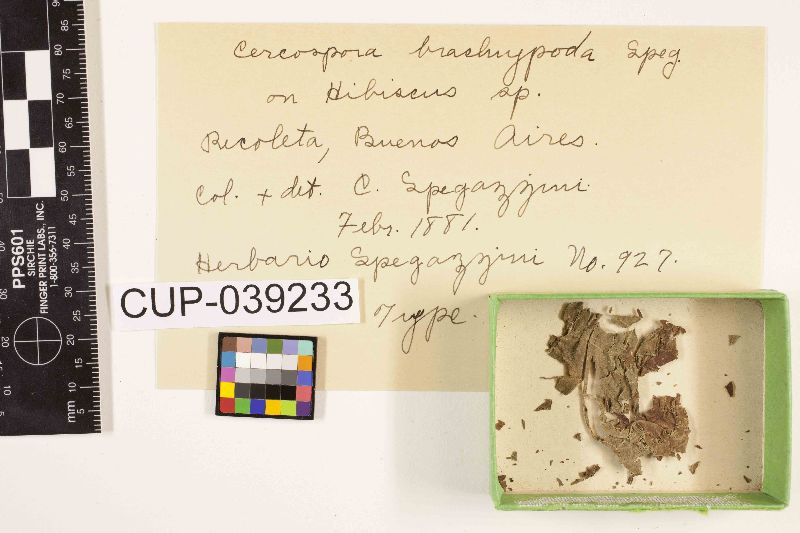 Cercospora brachypoda Speg.
on Hibiscus sp.
Recoleta, Buenos Aires.
Col. + det. C. Spegazzini
Febr. 1881.
Herbario Spegazzini No. 927.
Type.
CUP-039233
PPS601
SIRCHIE
FINGER PRINT LABS, INC.
1-800-356-7311
90
85
80
75
70
65
60
55
50
45
40
35
30
25
20
15
10
5
mm